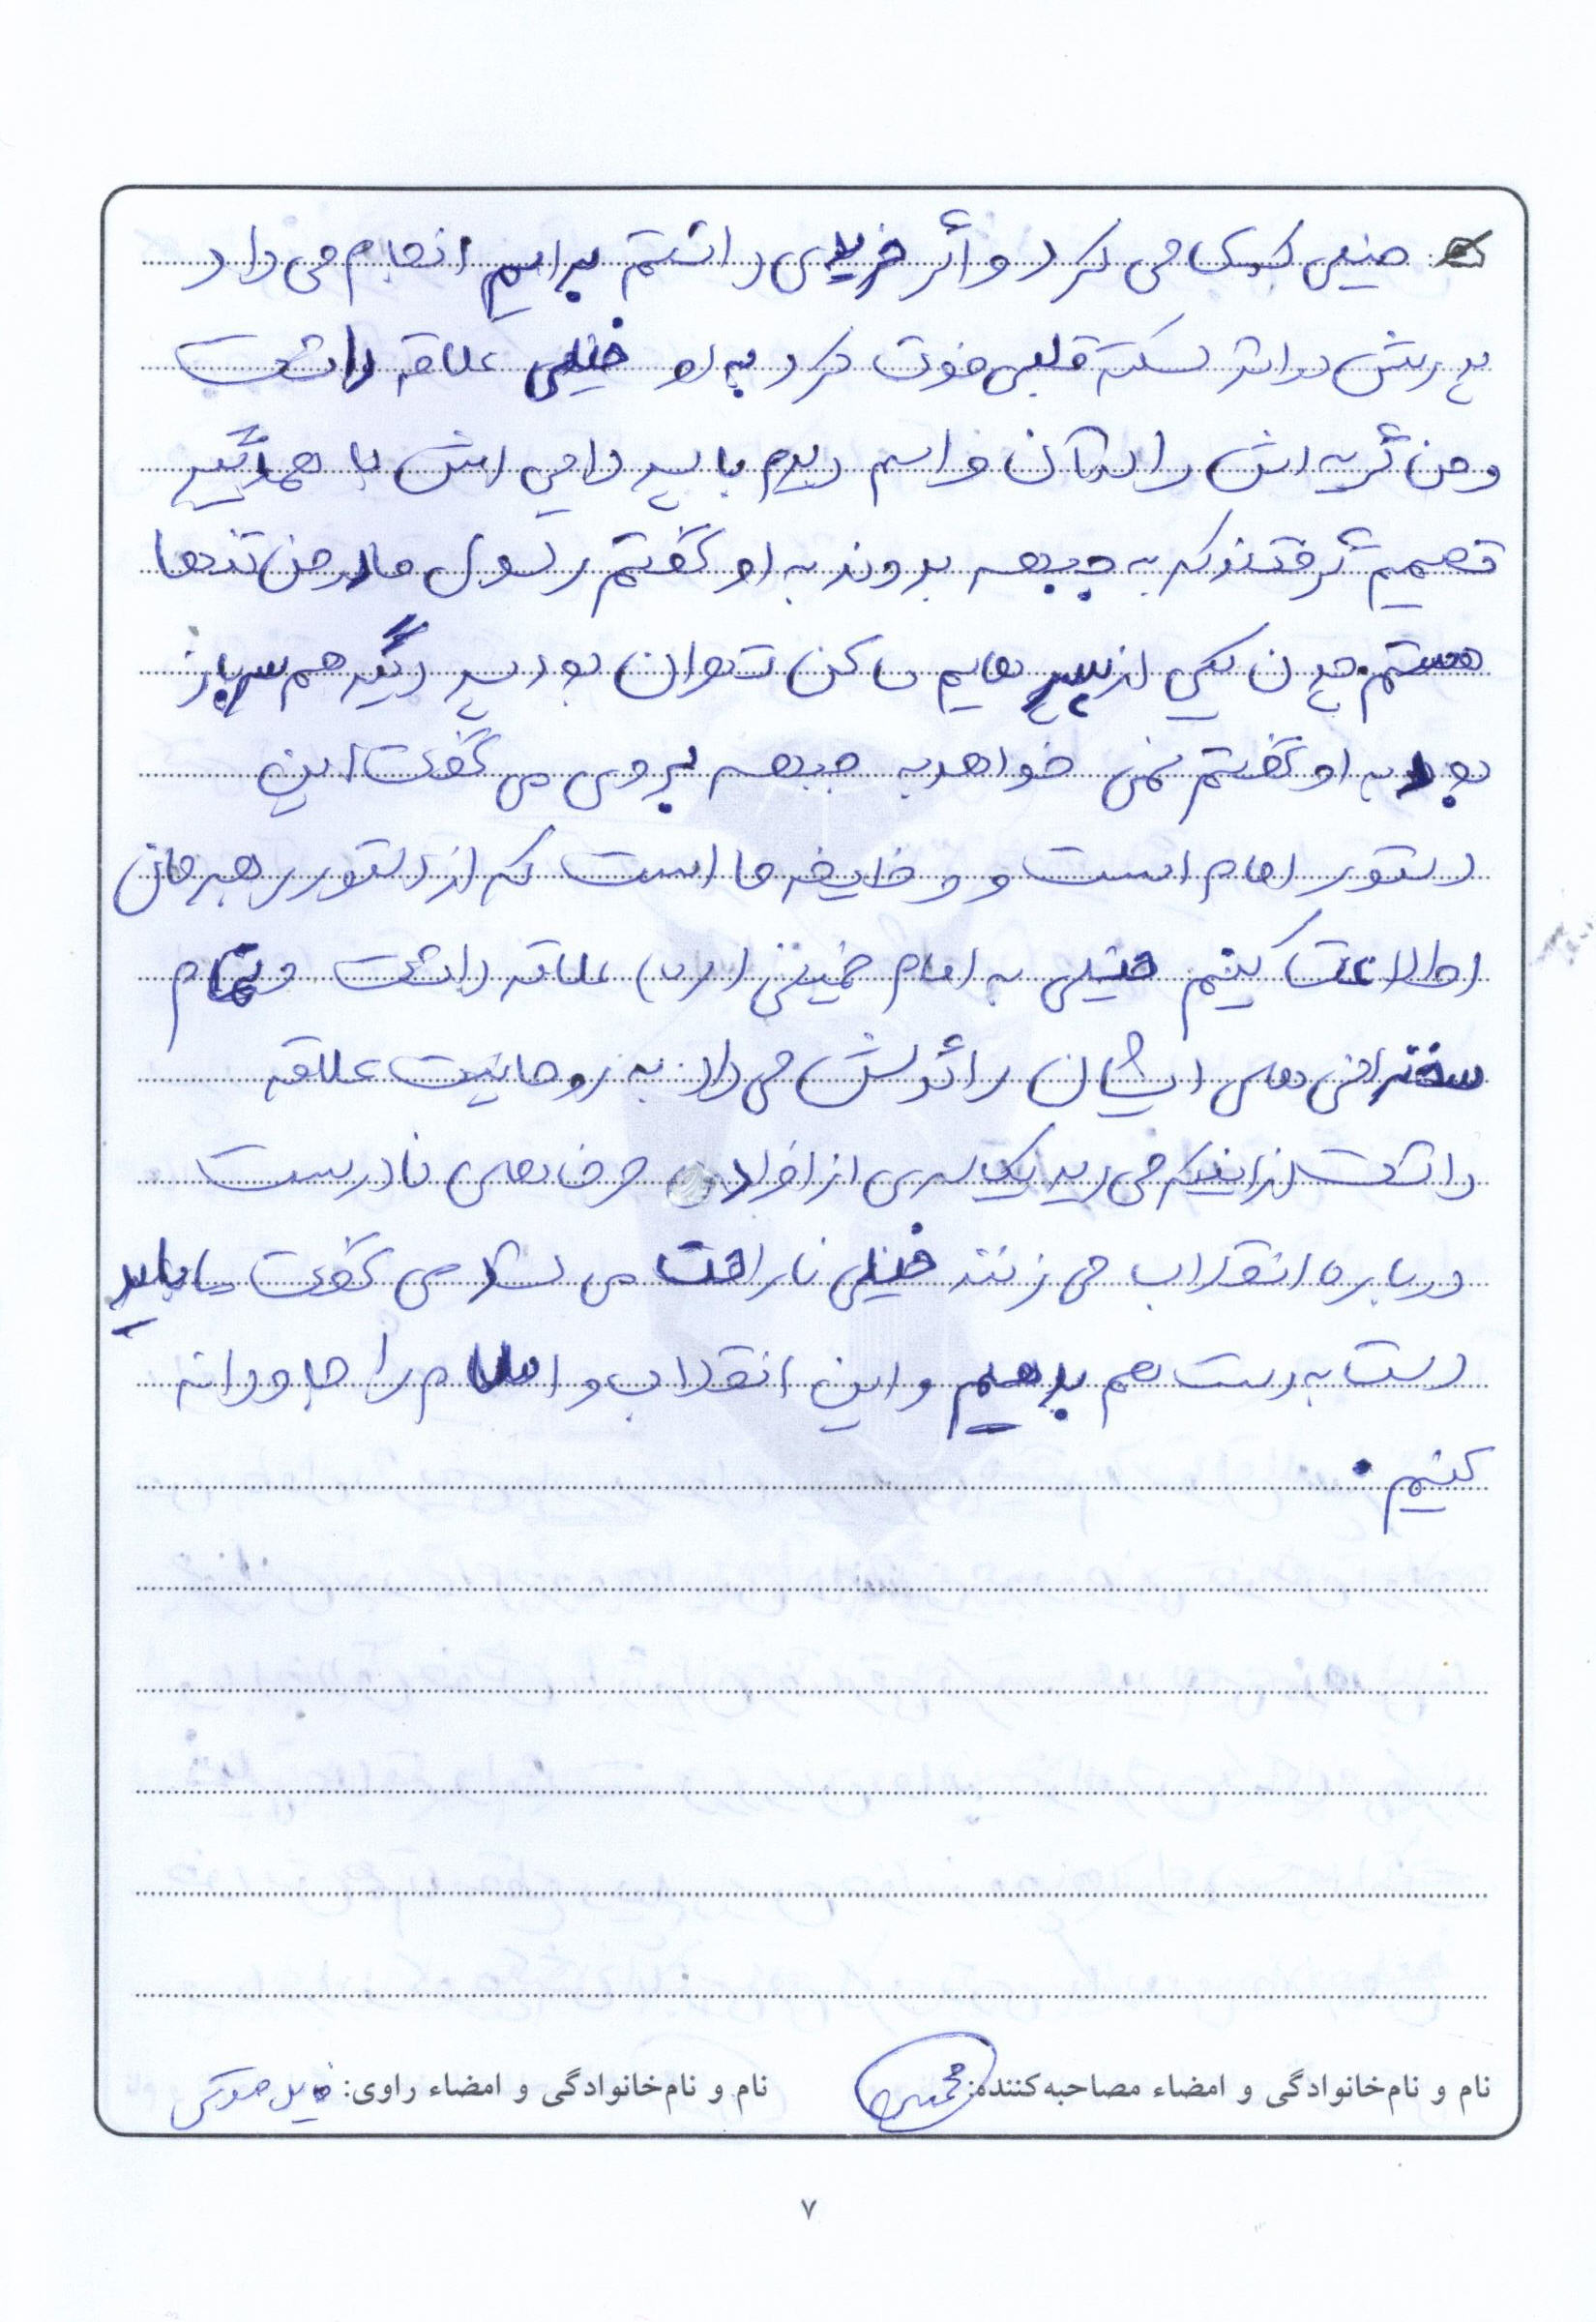 خیلی کمک می کرد و اگر خریدی داشتم برایم انجام می داد
پدرش در اثر سکته قلبی فوت کرد به او خیلی علاقه داشت
و من گریه اش را آن دیدم با پسر دایی اش با همدیگر
تصمیم گرفتند که به جبهه بروند به او گفتم رسول مادر من تنها
هستم چون یکی از پسر هایم ساکن تهران بود پسر دیگر هم سرباز
بود به او گفتم نمی خواهد به جبهه بروی می گفت این
دستور امام است و وظایفه ما است که از دستور رهبرمان
اطلاعت کنیم خیلی به امام خمینی (ره) علاقه داشت و تمام
سخنرانی های ایشان را گوش می داد به روحانیت علاقه
داشت از اینکه می دید یک سری از افراد حرف های نادرست
درباره انقلاب می زنند خیلی ناراحت می شد می گفت ما باید
دست به دست هم بدهیم و این انقلاب و اسلام را جاودانه
کنیم .
نام و نام‌خانوادگی و امضاء مصاحبه‌کننده: نام و نام‌خانوادگی و امضاء راوی:
۷